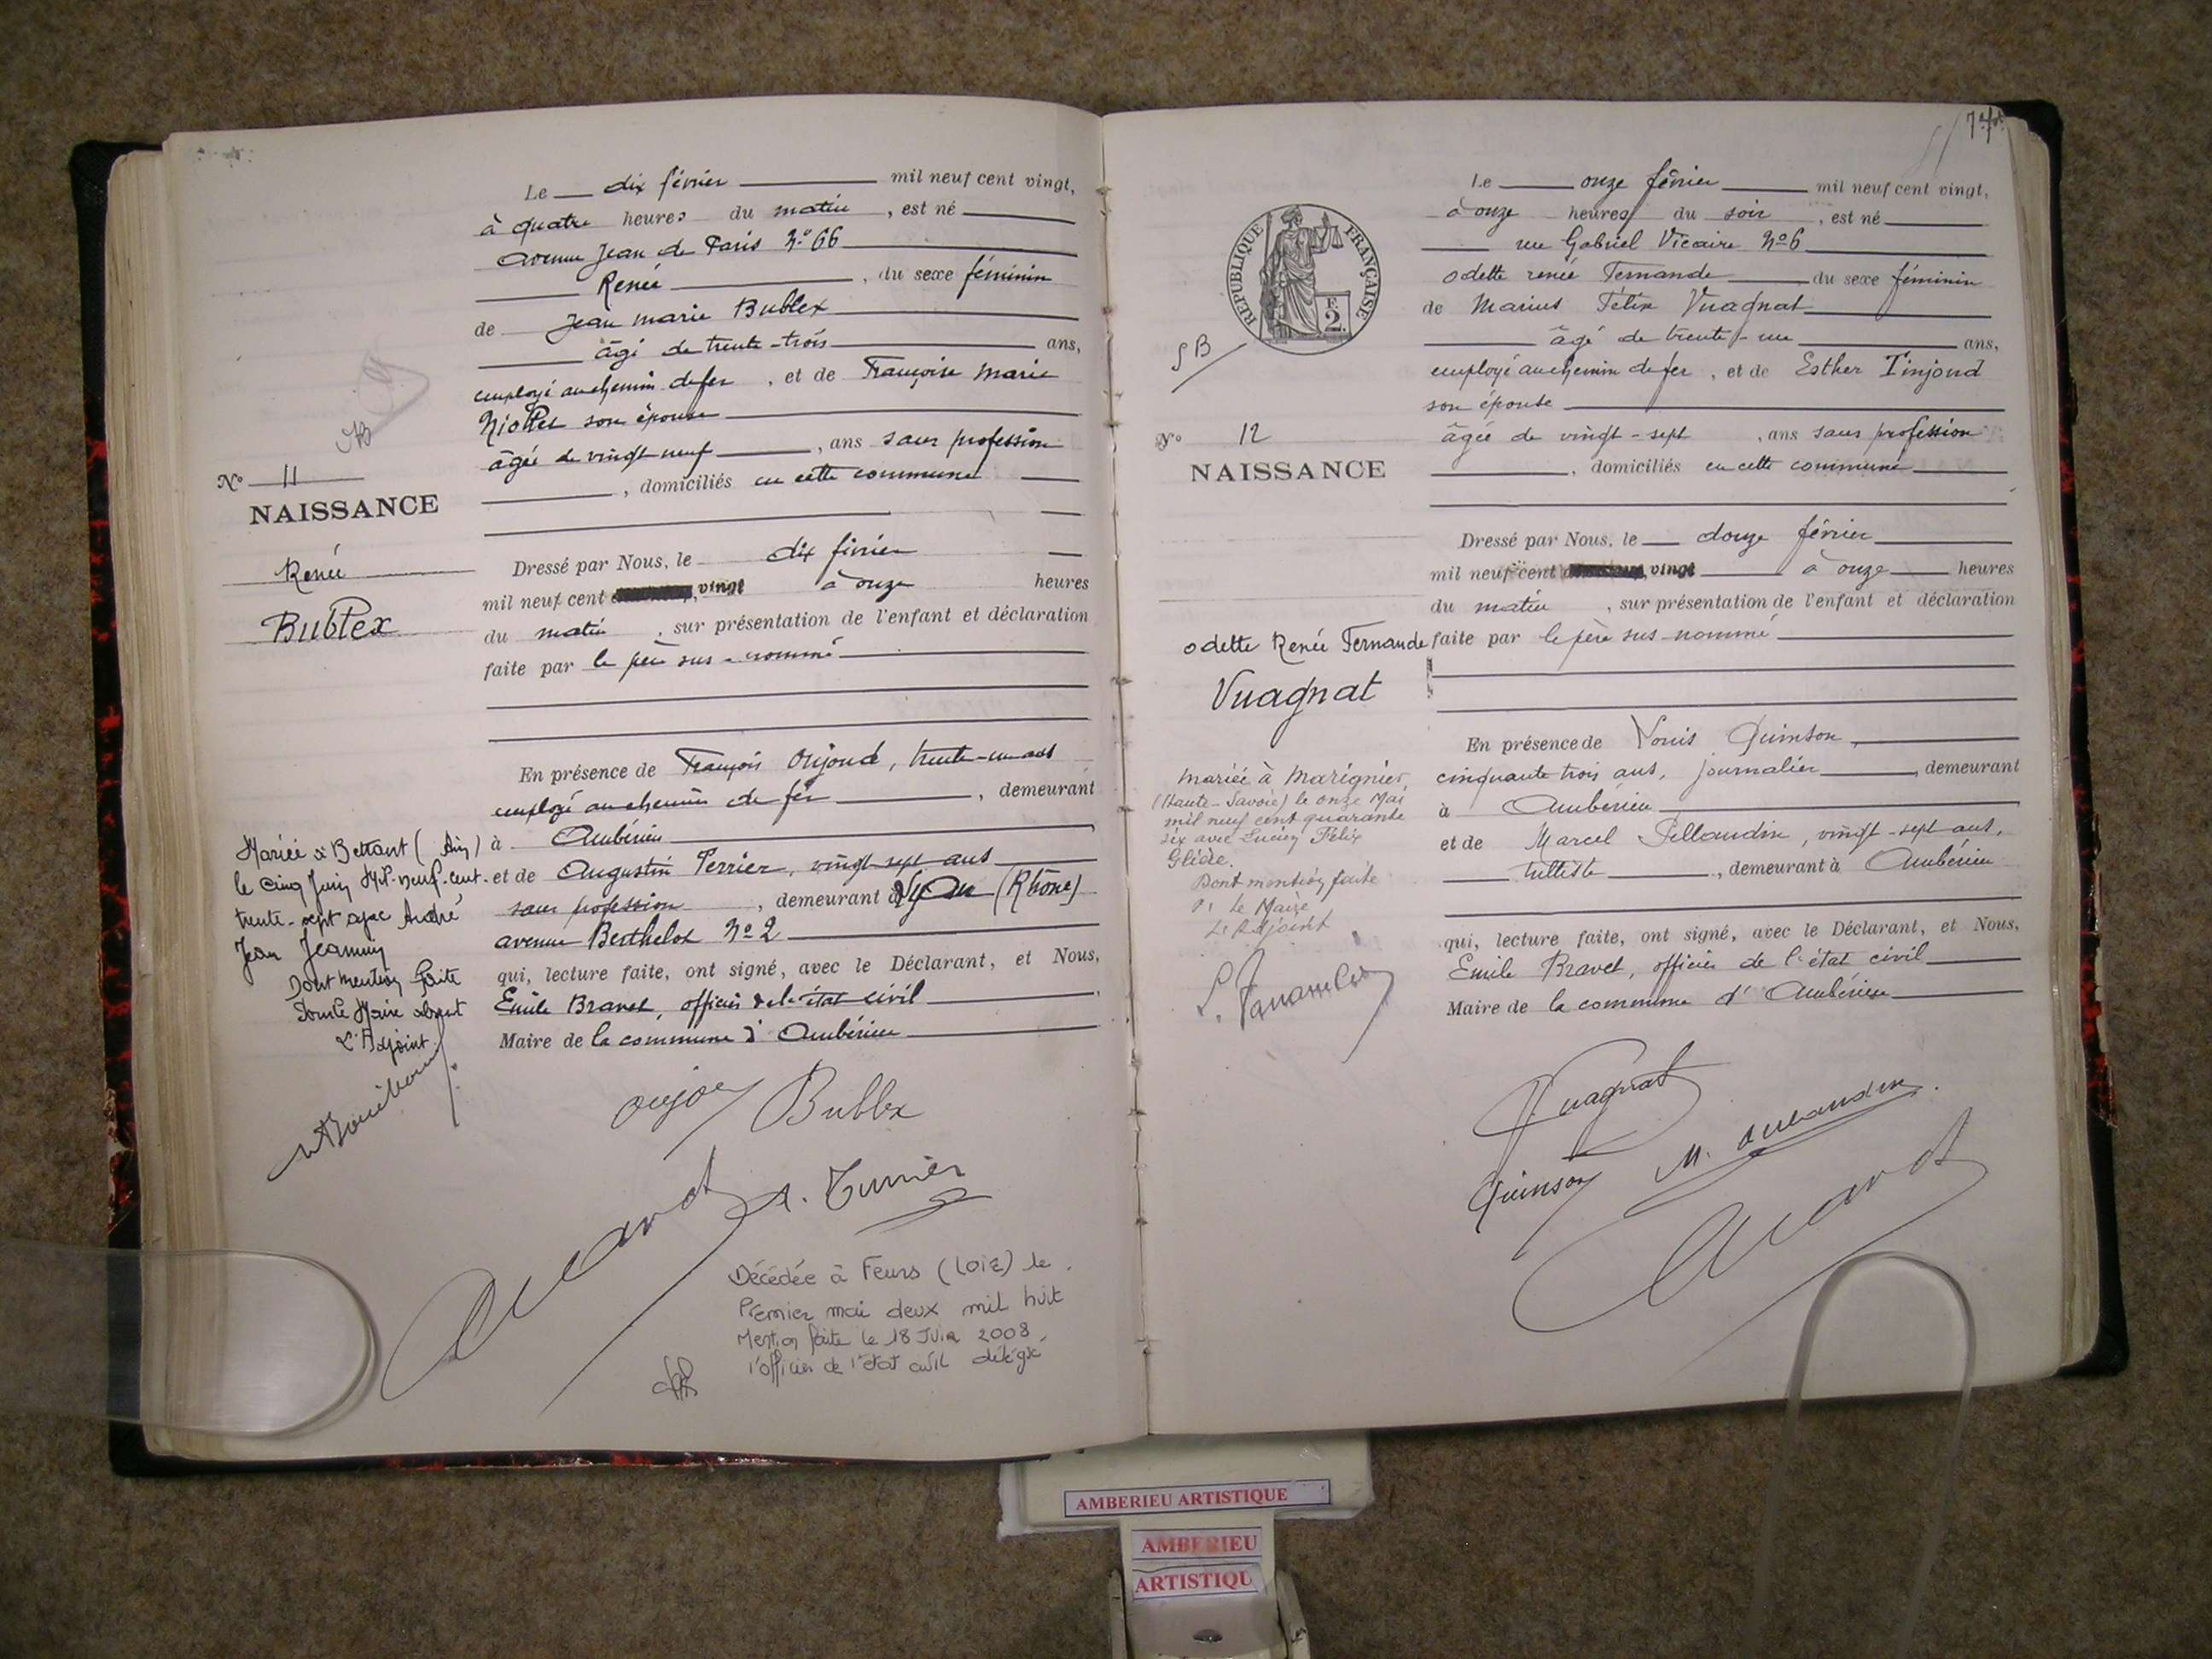 Le dix février mil neuf cent vingt,
à quatre heures du matin, est né
avenue Jean de Paris N.º 66
Renée, du sexe féminin
de Jean marie Bublex
âgé de trente-trois ans,
employé au chemin de fer, et de Françoise Marie
son épouse
âgée de vingt neuf, ans sans profession
, domiciliés en cette commune
Nº 11
NAISSANCE
Renée
Bublex
Dressé par Nous, le dix février
mil neuf cent vingt à onze heures
du matin, sur présentation de l'enfant et déclaration
faite par le père sus-nommé
En présence de François Orijoud, trente-un ans
employé au chemin de fer, demeurant
à Ambérieu
et de Augustin Perrier, vingt-sept ans
sans profession, demeurant à Lyon (Rhône)
avenue Berthelot Nº 2
qui, lecture faite, ont signé, avec le Déclarant, et Nous,
Emile Bravet, officier de l'état civil
Maire de la commune d'Ambérieu
Mariée à Bettant (Ain)
le cinq Juin Mil-neuf-cent-
trente-sept avec André
Jean Jeannin
Dont mention faite
Pour le Maire absent
L'Adjoint
Bublex
Décédée à Feurs (Loire) le
Premier mai deux mil huit
Mention faite le 18 Juin 2008,
l'officier de l'état civil délégué
Le onze février mil neuf cent vingt,
à onze heures du soir, est né
rue Gabriel Vicaire Nº 6
odette renée Fernande du sexe féminin
de Marius Félix Vuagnat
âgé de trente-un ans,
employé au chemin de fer, et de Esther Tinjoud
son épouse
âgée de vingt-sept, ans sans profession
, domiciliés en cette commune
RÉPUBLIQUE FRANÇAISE
F.
2.
SB
Nº 12
NAISSANCE
odette Renée Fernande
Vuagnat
Dressé par Nous, le douze février
mil neuf cent vingt à onze heures
du matin, sur présentation de l'enfant et déclaration
faite par le père sus-nommé
En présence de Louis Quinson,
cinquante trois ans, journalier, demeurant
à Ambérieu
et de Marcel Pellaudin, vingt-sept ans,
tulliste, demeurant à Ambérieu
qui, lecture faite, ont signé, avec le Déclarant, et Nous,
Emile Bravet, officier de l'état civil
Maire de la commune d'Ambérieu
mariée à Marignier
(Haute-Savoie) le onze Mai
mil neuf cent quarante
six avec Lucien Félix
Glière.
Dont mention faite
Pr Le Maire
L'Adjoint
Vuagnat
Quinson
AMBERIEU ARTISTIQUE
AMBERIEU
ARTISTIQU